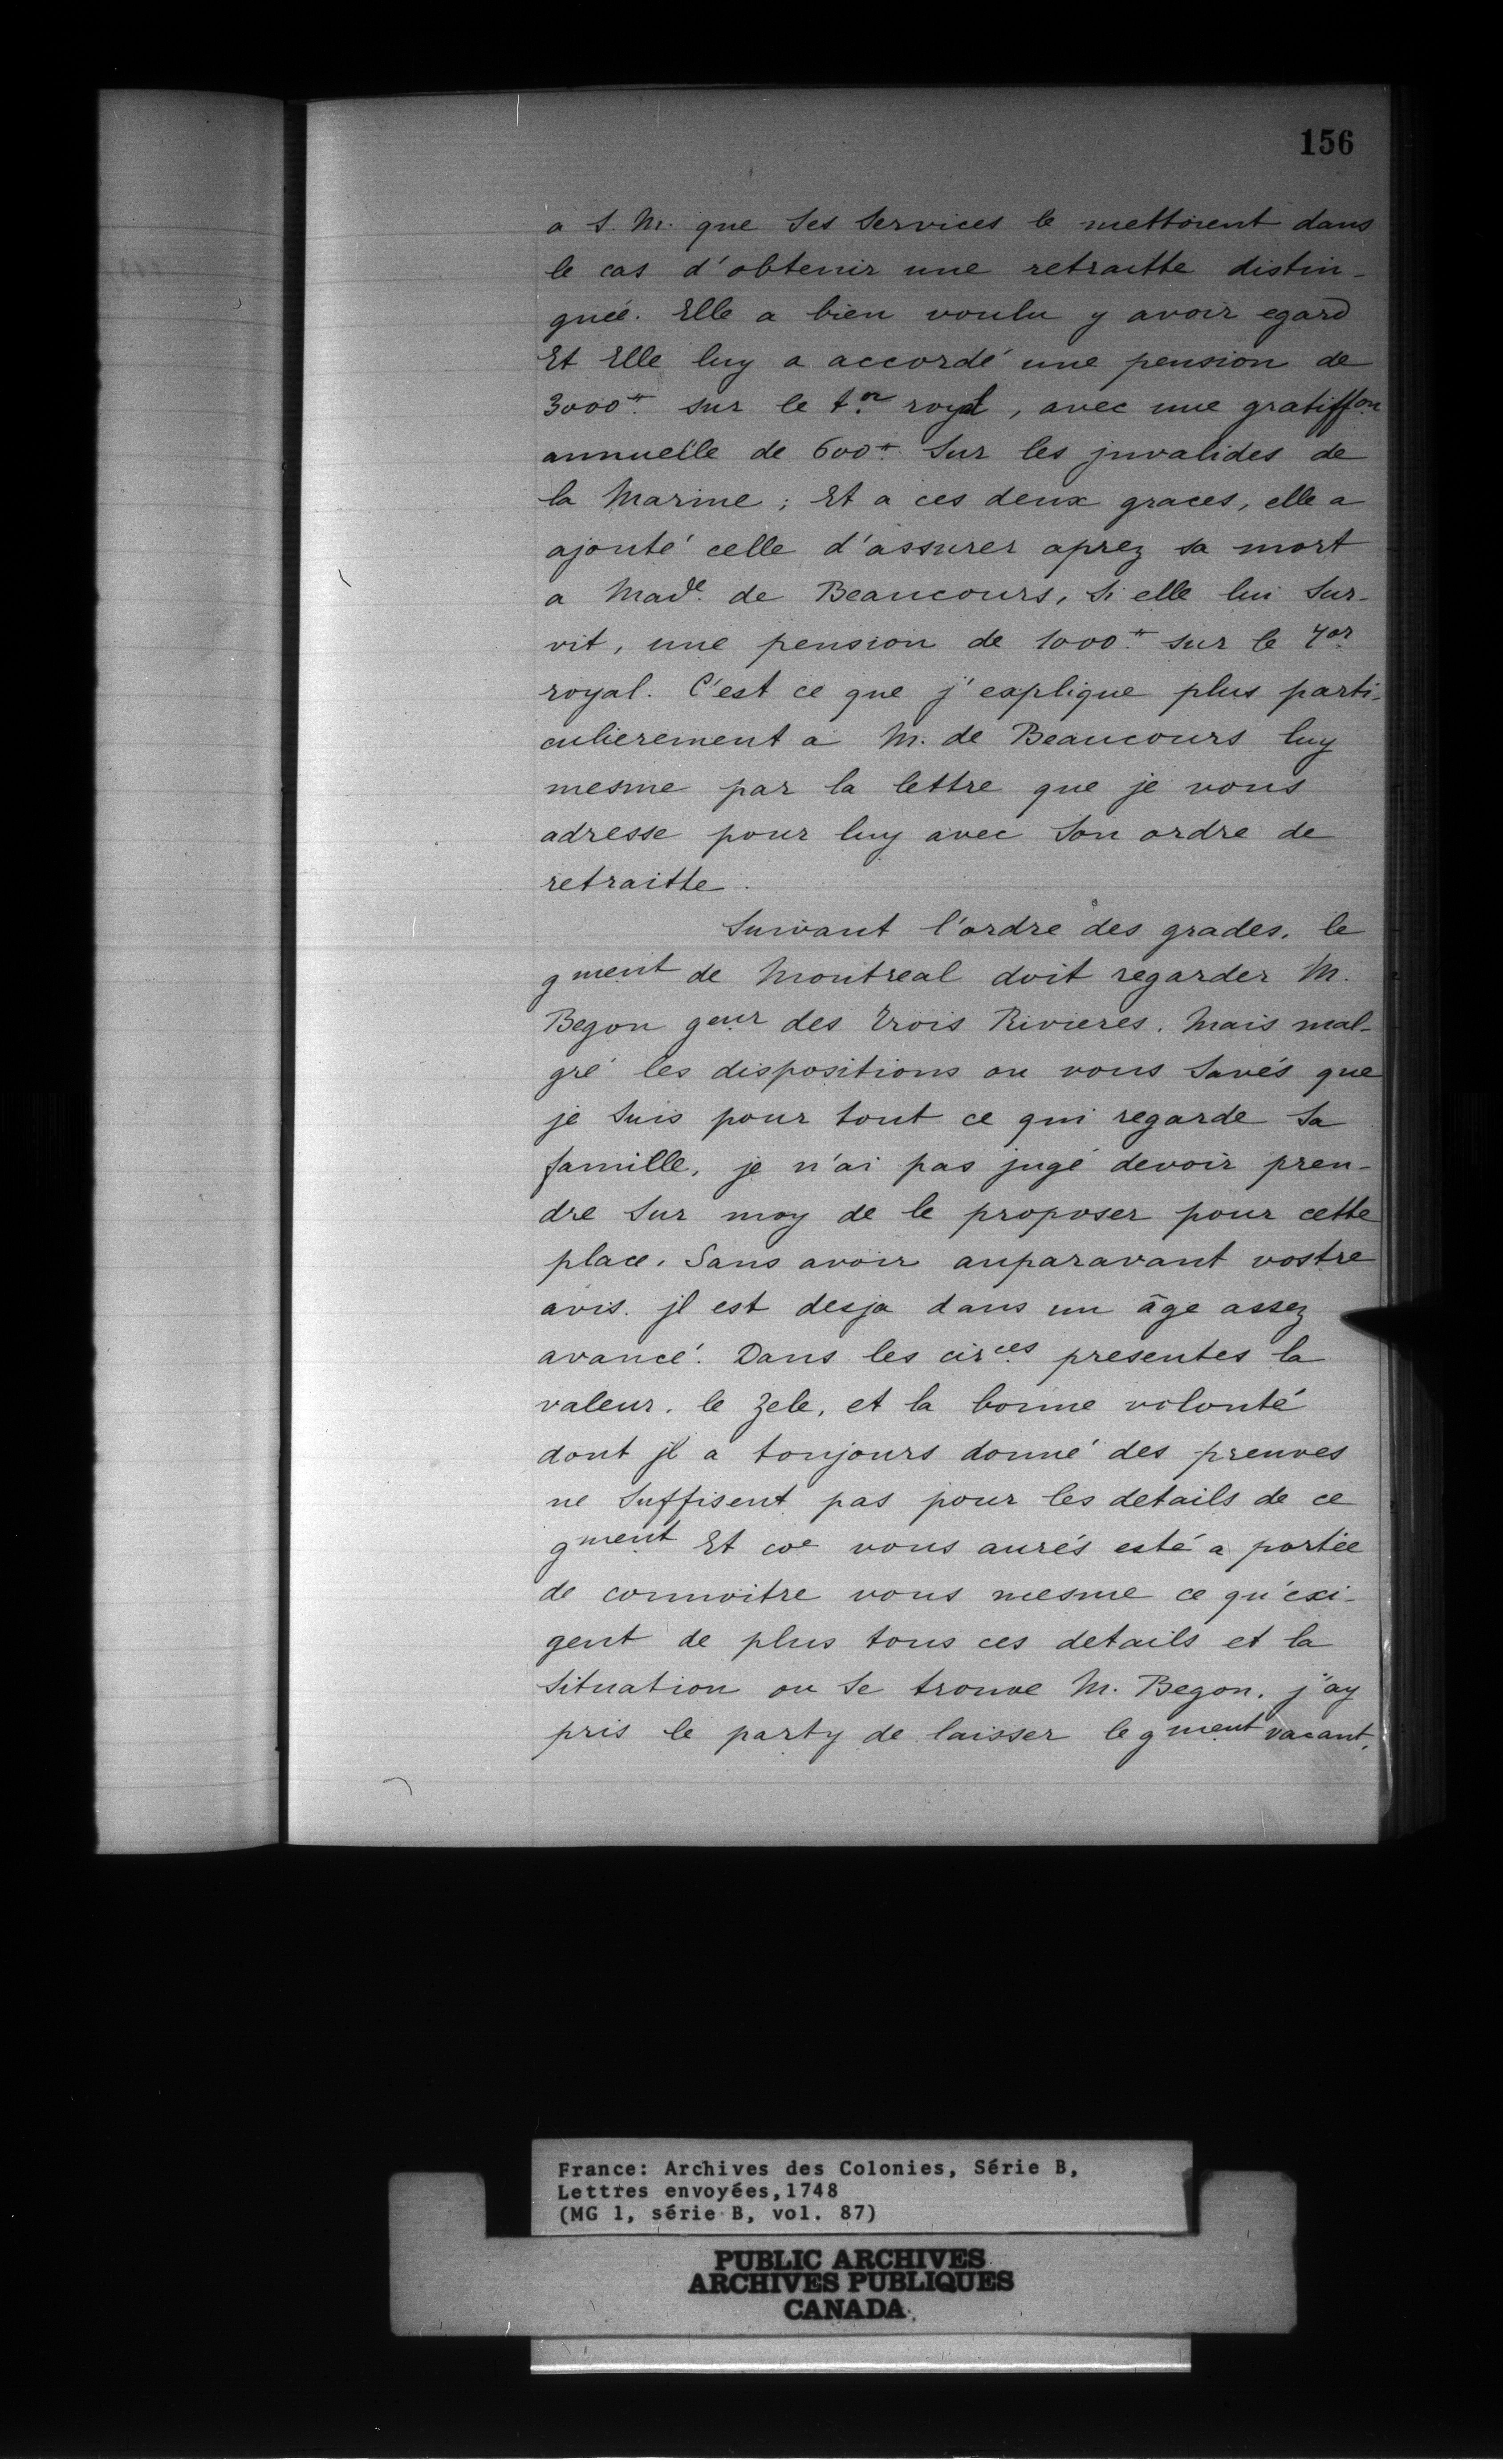 156
a S. M. que ses services le mettoient dans
le cas d'obtenir une retraitte distin-
guée. Elle a bien voulu y avoir egard
Et Elle luy a accordé une pension de
3000.ᵗᵗ sur le t.ᵒʳ royal, avec une gratiffᵒⁿ
annuelle de 600.ᵗᵗ sur les jnvalides de
la Marine ; Et a ces deux graces, elle a
ajouté celle d'assurer aprez sa mort
a Madᵉ. de Beaucours, si elle lui sur-
vit, une pension de 1000.ᵗᵗ sur le Tᵒʳ
royal. C'est ce que j'explique plus parti-
culierement a M. de Beaucours luy
mesme par la lettre que je vous
adresse pour luy avec son ordre de
retraitte.
Suivant l'ordre des grades, le
gᵐᵉⁿᵗ de Montreal doit regarder M.
Begon gᵉᵘʳ des Trois Rivieres. Mais mal-
gré les dispositions ou vous savés que
je suis pour tout ce qui regarde sa
famille, je n'ai pas jugé devoir pren-
dre sur moy de le proposer pour cette
place, sans avoir auparavant vostre
avis. jl est desja dans un âge assez
avancé. Dans les cirᶜᵉˢ presentes la
valeur, le zele, et la bonne volonté
dont jl a toujours donné des preuves
ne suffisent pas pour les details de ce
gᵐᵉⁿᵗ Et coᵉ vous aurés esté a portée
de connoitre vous mesme ce qu'exi-
gent de plus tous ces details et la
situation ou se trouve M. Begon, j'ay
pris le party de laisser le gᵐᵉⁿᵗ vacant,
France: Archives des Colonies, Série B,
Lettres envoyées,1748
(MG 1, série B, vol. 87)
PUBLIC ARCHIVES
ARCHIVES PUBLIQUES
CANADA